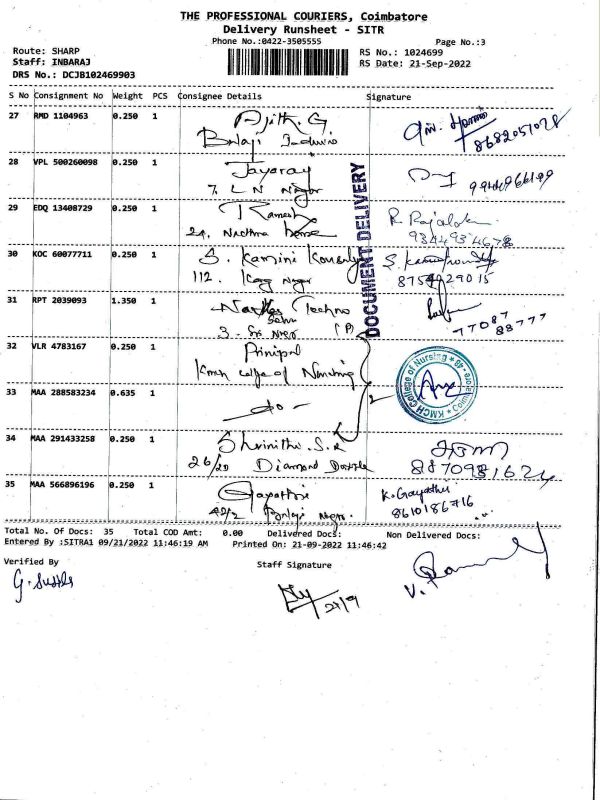 THE PROFESSIONAL COURIERS, Coimbatore
Delivery Runsheet - SITR
Phone No.:0422-3505555 Page No.:3
Route: SHARP RS No.: 1024699
Staff: INBARAJ RS Date: 21-Sep-2022
DRS No.: DCJB102469903
S No Consignment No Weight PCS Consignee Details Signature
27 RMD 1104963 0.250 1 Ajith. G
Balaji
8682051078
28 VPL 500260098 0.250 1 Jayaraj
7, L N Nagar
29 EDQ 13408729 0.250 1 Ramesh R Rajalak
9344934678
30 KOC 60077711 0.250 1 S. Kamini
112. Nagar 8754029015
31 RPT 2039093 1.350 1 Techno
3. Sri Nagar (P) 77087
88777
DOCUMENT DELIVERY
32 VLR 4783167 0.250 1 Prinipal
Kmch college of Nursing
33 MAA 288583234 0.635 1 -do- 2
KMCH College of Nursing Coimbatore - 48
34 MAA 291433258 0.250 1 Shrinithi S.R
26/20 Diamond
35 MAA 566896196 0.250 1 Gayathri K. Gayathri
42/2 Balaji Nagar. 8610186716
Total No. Of Docs: 35 Total COD Amt: 0.00 Delivered Docs: Non Delivered Docs:
Entered By :SITRA1 09/21/2022 11:46:19 AM Printed On: 21-09-2022 11:46:42
Verified By Staff Signature